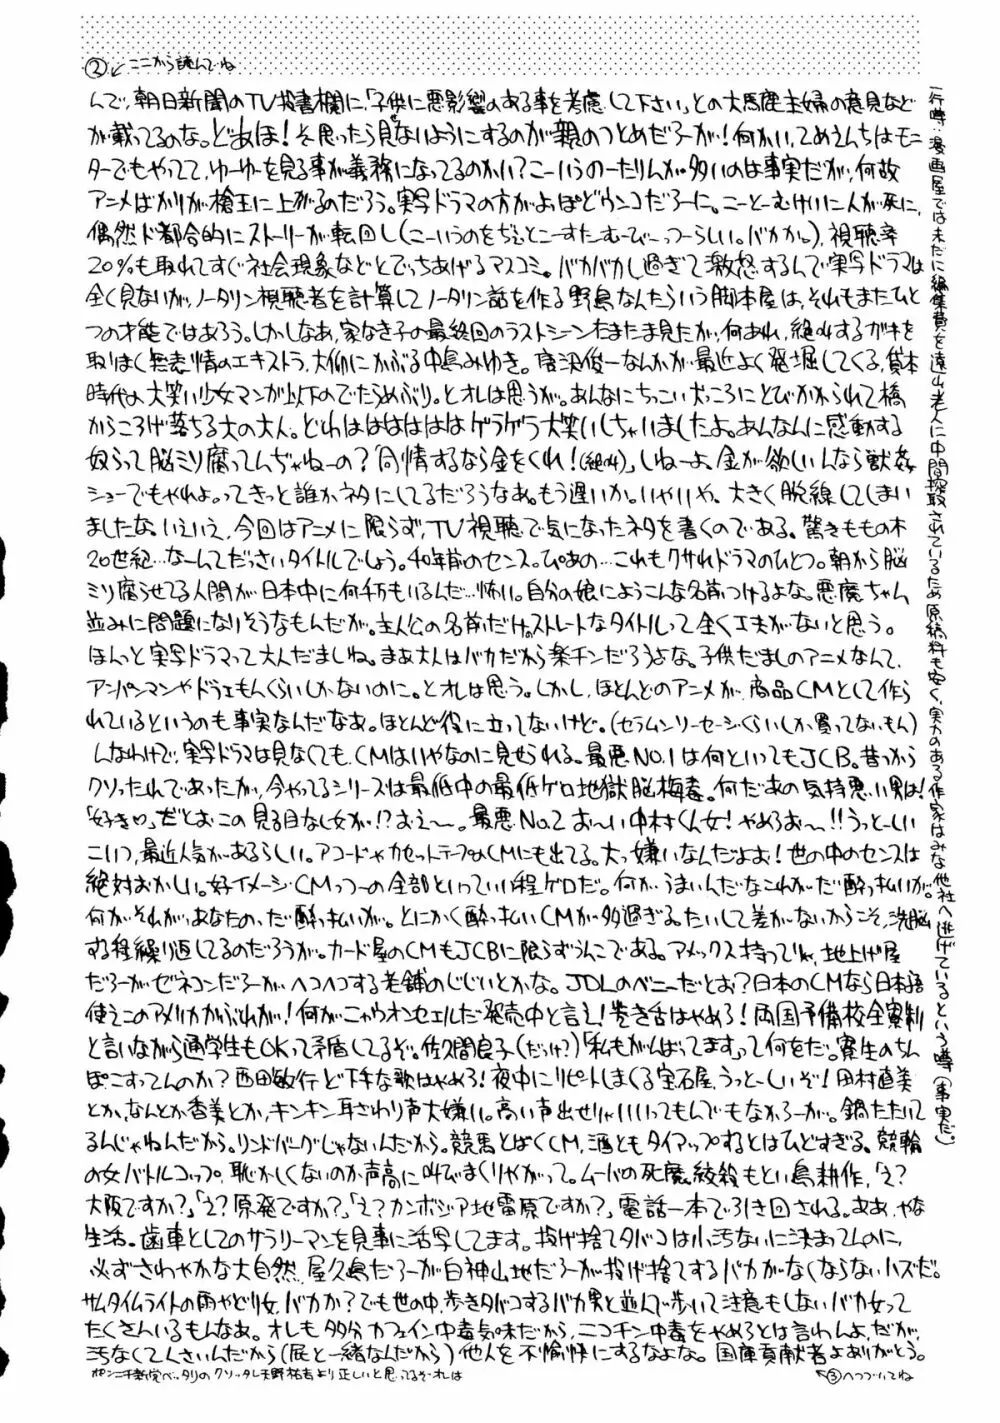 ②↙ここから読んでね
んで、朝日新聞のTV投書欄に、「子供に悪影響のある事を考慮して下さい」との大馬鹿主婦の意見など
が載ってるのな。どあほ！そ思ったら見せないようにするのが親のつとめだろーが！何かい、てめえんちはモニ
ターでもやってて、ゆーゆーを見る事が義務になってるのかい？こーいうのーたりんが多いのは事実だが、何故
アニメばかりが槍玉に上がるのだろう。実写ドラマの方がよっぽどウンコだろーに。こーとーむけいに人が死に、
偶然ド都合的にストーリーが転回し(こーいうのをぢぇとこーすたーむーびーっつーらしい。バカか。)、視聴率
20%も取れてすぐ社会現象などとでっちあげるマスコミ。バカバカし過ぎて激怒するんで実写ドラマは
全く見ないが、ノータリン視聴者を計算してノータリン話を作る野島なんたらいう脚本屋は、それもまたひと
つの才能ではあろう。しかしなあ、家なき子の最終回のラストシーンたまたま見たが、何あれ、絶叫するガキを
取りまく無表情のエキストラ、大仰にかぶる中島みゆき。唐沢俊一なんかが最近よく発掘してくる、貸本
時代の大笑い少女マンガ以下のでたらめぶり。とオレは思うが。あんなにちっこい犬っころにとびかかられて橋
からころげ落ちる大の大人。どわはははははゲラゲラ大笑いしちゃいましたよ。あんなんに感動する
奴らって脳ミソ腐ってんぢゃねーの？「同情するなら金をくれ！(絶叫)」しねーよ。金が欲しいんなら獣姦
ショーでもやれよ。ってきっと誰かネタにしてるだろうなあ。もう遅いか。いやいや、大きく脱線してしまい
ましたな。いえいえ、今回はアニメに限らず、TV視聴で気になったネタを書くのである。驚きももの木
20世紀…なーんてだっさいタイトルでしょう。40年前のセンス。ぴあの…これもクサれドラマのひとつ。朝から脳
ミソ腐らせてる人間が日本中に何千万もいるんだ…怖い。自分の娘にようこんな名前つけるよな。悪魔ちゃん
並みに問題になりそうなもんだが。主人公の名前だけ。のストレートなタイトルって全く工夫がないと思う。
ほんっと実写ドラマって大人だましね。まあ大人はバカだから楽チンだろうよな。子供だましのアニメなんて、
アンパンマンやドラえもんくらいしかないのに。とオレは思う。しかし、ほとんどのアニメが、商品CMとして作ら
れているというのも事実なんだなあ。ほとんど役に立ってないけど。(セラムンソーセージくらいしか買ってないもん)
しなわけで、実写ドラマは見なくても、CMはいやなのに見せられる。最悪NO.1は何といってもJCB。昔っから
クソったれであったが、今やってるシリーズは最低中の最低ゲロ地獄脳梅毒。何だあの気持悪い男は！
「好きい」だとおこの見る目なし女が！？おえ〜。最悪No.2お〜い中村くん女！やめろお〜!!うっとーしい
こいつ、最近人気があるらしい。アコードやカセットテープのCMにも出てる。大っ嫌いなんだよお！世の中のセンスは
絶対おかしい。好イメージCMっつーの全部といっていい程ゲロだ。何が、うまいんだなこれがだ酔っ払いが。
何が、それが、あなたの、だ酔っ払いが。とにかく酔っ払いCMが多過ぎる。たいして差がないからこそ、洗脳
する程繰り返してるのだろうが。カード屋のCMもJCBに限らずうんこである。アメックス持ってりゃ、地上げ屋
だろーがゼネコンだろーがヘコヘコする老舗のじじいとかな。JDLのベニーだとお？日本のCMなら日本語
使えこのアメリカかぶれが！何がニャウオンセェルだ発売中と言え！巻き舌はやめろ！両国予備校全寮制
と言いながら通学生もOKって矛盾してるぞ。佐久間良子(だっけ？)「私もがんばってます」って何をだ。寮生のちん
ぽこすってんのか？西田敏行ど下手な歌はやめろ！夜中にリピートしまくる宝石屋、うっとーしいぞ！田村直美
とか、なんとか香美とか、キンキン耳ざわり声大嫌い。高い声出せりゃいいってもんでもなかろーが。鍋たたいて
るんじゃねんだから。リンドバーグじゃないんだから。競馬とばくCM、酒ともタイアップするとはひどすぎる。競輪
の女バトルコップ。恥かしくないのか声高に叫びまくりやがって。ムードの死魔絞殺もとい島耕作、「え？
大阪ですか？」「え？原発ですか？」「え？カンボジア地雷原ですか？」電話一本で引き回される。ああ、やな
生活。歯車としてのサラリーマンを見事に活写してます。投げ捨てタバコは小汚ないに決まってんのに、
必ずさわやかな大自然、屋久島だろーが白神山地だろーが投げ捨てするバカがなくならないハズだ。
サムタイムライトの雨やどり女、バカか？でも世の中、歩きタバコするバカ男と並んで歩いて注意もしないバカ女って
たくさんいるもんなあ。オレも多分カフェイン中毒気味だから、ニコチン中毒をやめろとは言わんよ、だが、
汚なくてくさいんだから(屁と一緒なんだから)他人を不愉快にするなよな。国庫貢献者よありがとう。
ポンニチ新党ベッタリのクソッタレ天野祐吉より正しいと思ってるぞオレは
↖③へつづいてね
一行噂：漫画屋では未だに編集費を遠山老人に中間搾取されているため原稿料も安く、実力のある作家はみな他社へ逃げているという噂(事実だ。)